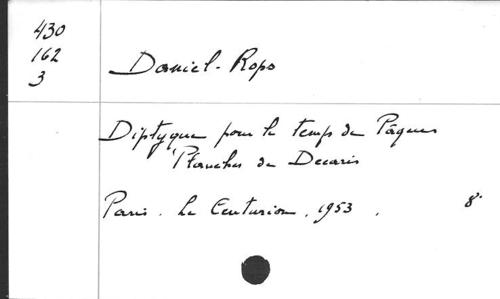 430
162
3
Daniel-Rops
Diptyque pour le temps de Pâques
Planches de Decaris
Paris. Le Centurion, 1953, 8°